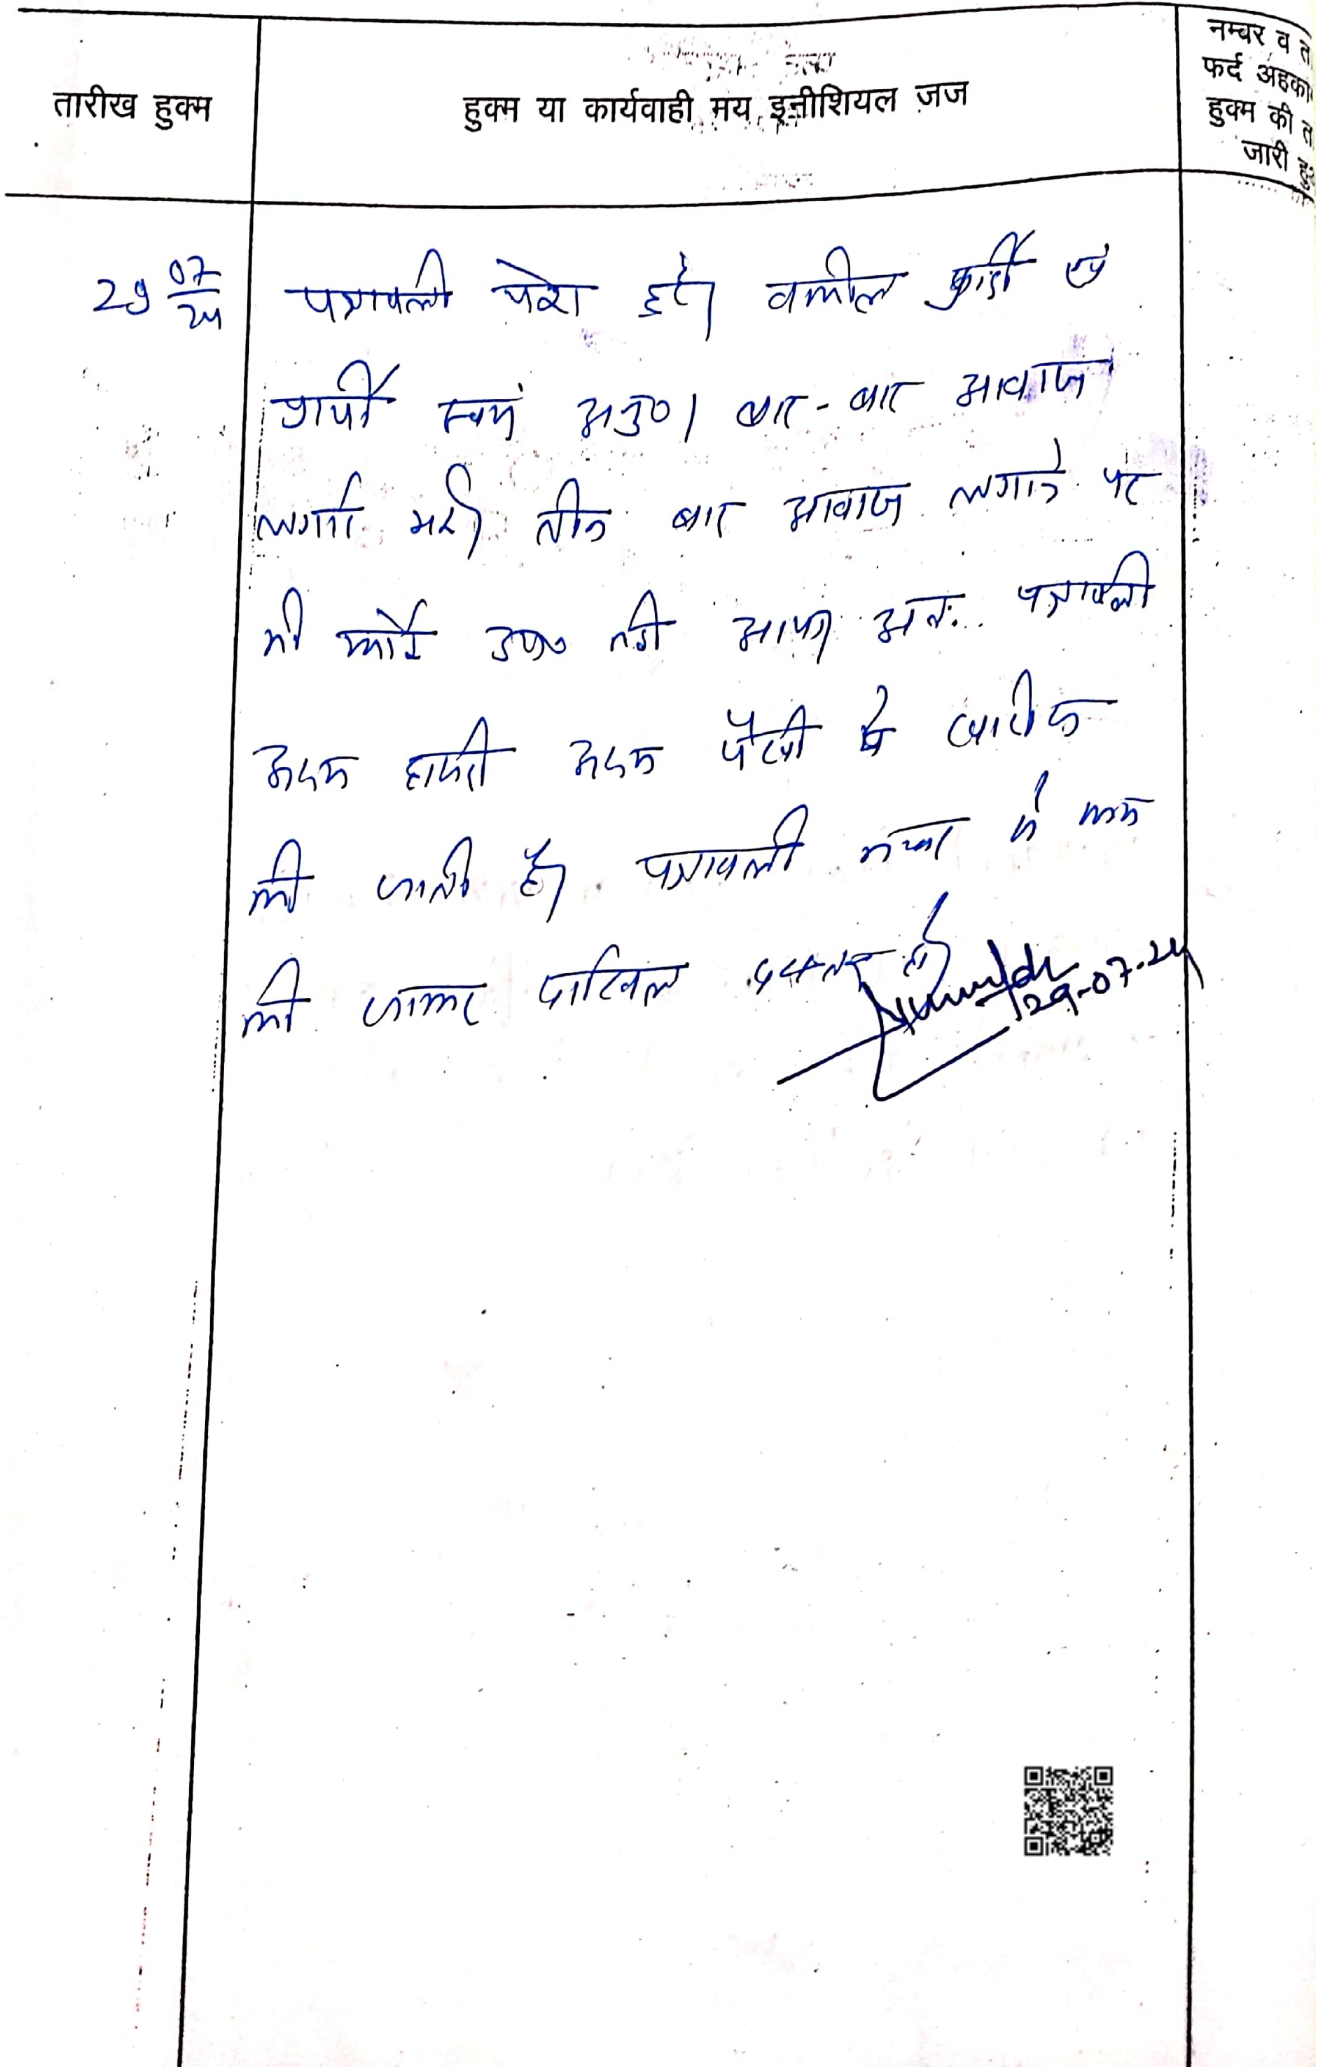 नम्बर व
तारीख हुक्म हुक्म या कार्यवाही मय इनीशियल जज
फर्द
हुक्म की
जारी
29 07/24 पत्रावली पेश हुई। वकील प्रार्थी एवं
प्रार्थी स्वयं अनु०। बार-बार आवाज
लगाई गई। तीन बार आवाज लगाने पर
भी कोई उप० नही आया। अतः पत्रावली
अदम हाजरी अदम पैरवी में खारीज
की जाती है। पत्रावली नम्बर से कम
की जाकर दाखिल दफ्तर हो।
29-07-24